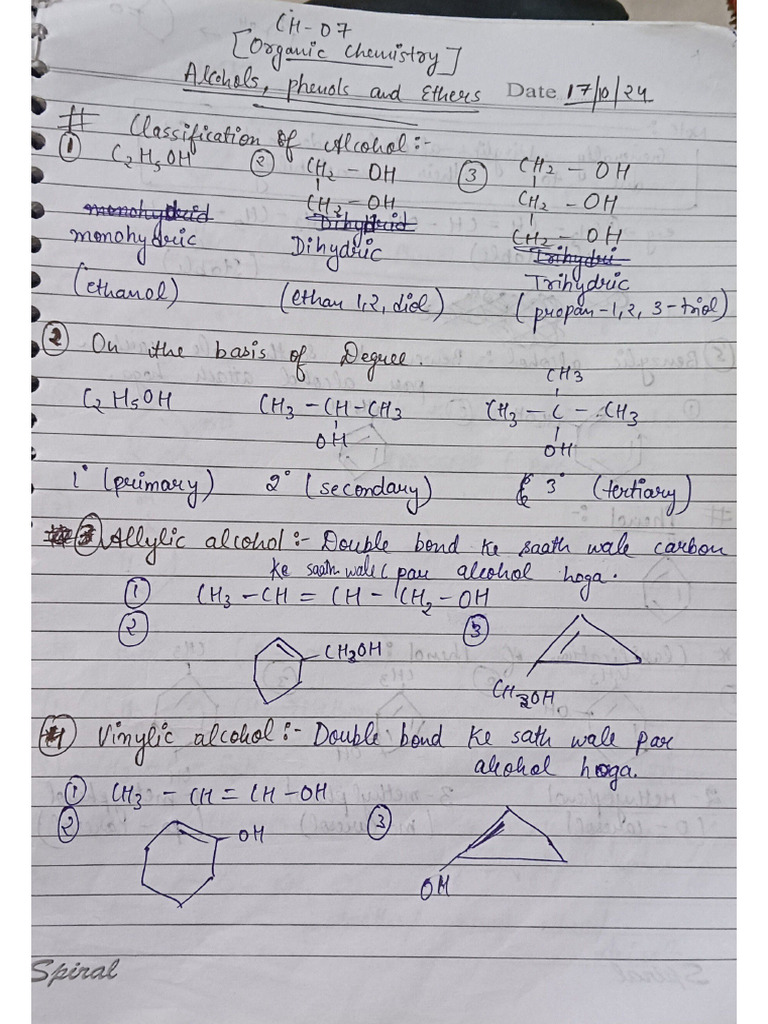 CH-07
[Organic Chemistry]
Alcohols, phenols and Ethers Date 17/10/24
# Classification of Alcohol:-
① C2H5OH ② CH2 - OH ③ CH2 - OH
CH2 - OH CH2 - OH
CH2 - OH
monohydric Dihydric Trihydric
(ethanol) (ethan 1,2, diol) (propan-1,2,3-triol)
② On the basis of Degree.
CH3
C2H5OH CH3 - CH - CH3 CH3 - C - CH3
OH OH
1° (primary) 2° (secondary) 3° (tertiary)
③ Allylic alcohol:- Double bond ke saath wale carbon
ke saath wale C par alcohol hoga.
① CH3 - CH = CH - CH2 - OH
② ③
CH2OH
CH2OH
④ Vinylic alcohol:- Double bond ke sath wale par
alcohol hoga.
① CH3 - CH = CH - OH
② OH ③
OH
Spiral